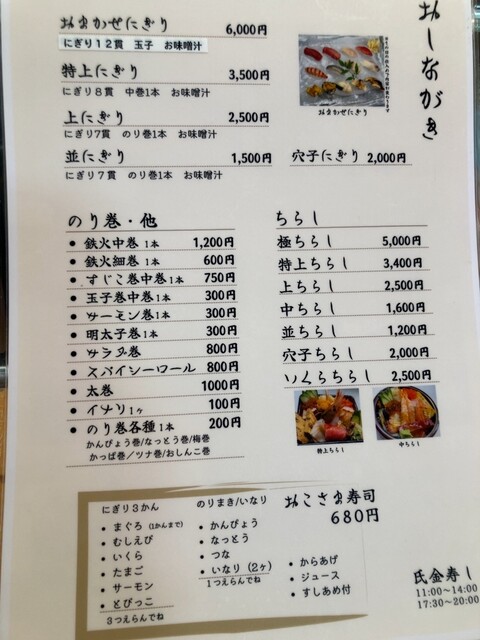 おしながき
おまかせにぎり 6,000円
にぎり12貫 玉子 お味噌汁
特上にぎり 3,500円
にぎり8貫 中巻1本 お味噌汁
上にぎり 2,500円
にぎり7貫 のり巻1本 お味噌汁
並にぎり 1,500円
にぎり7貫 のり巻1本 お味噌汁
おまかせにぎり
穴子にぎり 2,000円
のり巻・他
• 鉄火中巻 1本 1,200円
• 鉄火細巻 1本 600円
• すじこ巻中巻1本 750円
• 玉子巻中巻1本 300円
• サーモン巻1本 300円
• 明太子巻1本 300円
• サラダ巻 800円
• スパイシーロール 800円
• 太巻 1000円
• イナリ1ヶ 100円
• のり巻各種1本 200円
かんぴょう巻/なっとう巻/梅巻
かっぱ巻/ツナ巻/おしんこ巻
ちらし
極ちらし 5,000円
特上ちらし 3,400円
上ちらし 2,500円
中ちらし 1,600円
並ちらし 1,200円
穴子ちらし 2,000円
いくらちらし 2,500円
特上ちらし
中ちらし
おこさま寿司
680円
にぎり3かん
• まぐろ (1かんまで)
• むしえび
• いくら
• たまご
• サーモン
• とびっこ
3つえらんでね
のりまき/いなり
• かんぴょう
• なっとう
• つな
• いなり (2ヶ)
1つえらんでね
• からあげ
• ジュース
• すしあめ付
氏金寿し
11:00〜14:00
17:30〜20:00